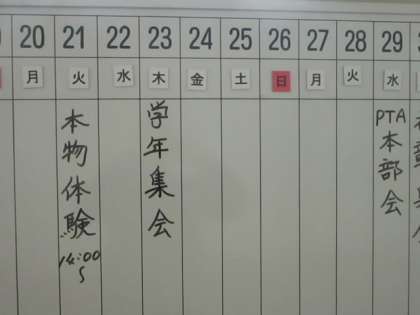 20 21 22 23 24 25 26 27 28 29
月 火 水 木 金 土 日 月 火 水
本物体験
14:00
〜
学年集会
PTA
本部会